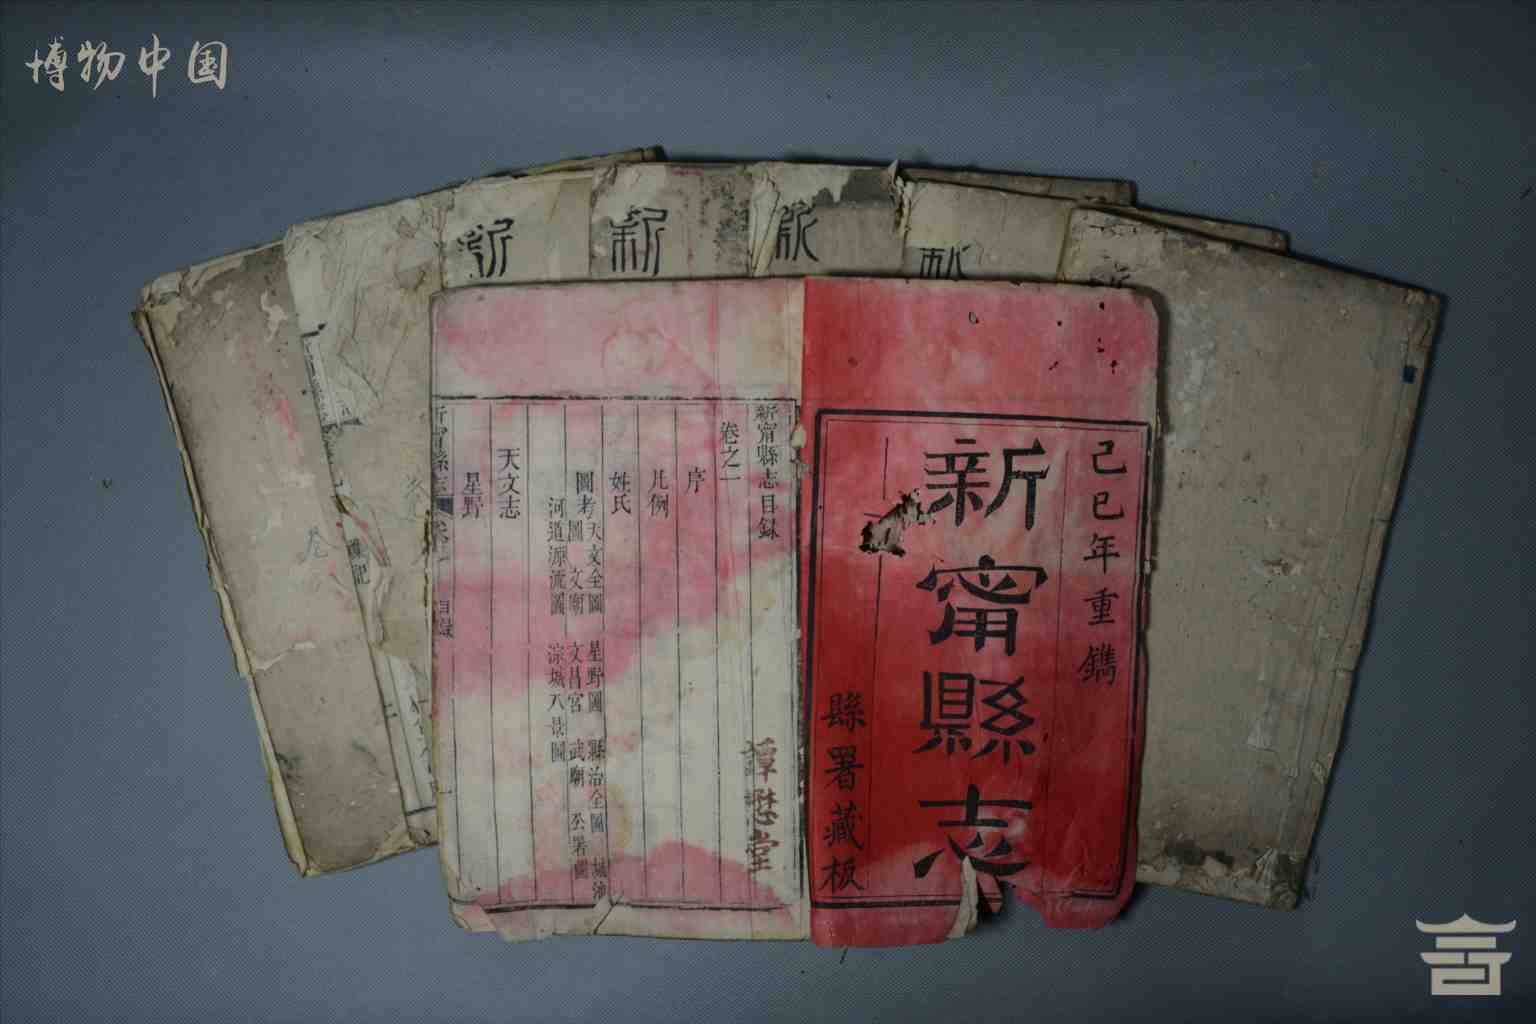 博物中国
新
新
新
新
己巳年重鐫
新甯縣志
縣署藏板
新甯縣志目録
卷之一
序
凡例
姓氏
圖考 天文全圖 星野圖 縣治全圖 城池
圖 文廟 文昌宮 武廟 公署圖
河道源流圖 淙城八景圖
天文志
星野
新甯縣志
目録
譚懋堂
卷
雜記